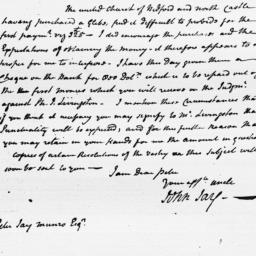 The united Church of Bedford and north Castle
having purchased a Glebe, find it difficult to provide for the
first paym.t vz 325£ — I did encourage the purchase and the
Expectations of obtaining the money — it therefore appears to
proper for me to interpose. I have this Day given them a
Cheque on the Bank for 800 Doll.s which is to be repaid out of
the first monies which you will recieve on the Judgm.t
against Ph: J. Livingston. I mention these Circumstances that
if you think it necessary you may signify to M.r Livingston that
Punctuality will be expected; and for this further reason that
you may retain in your Hands for me the amount in question
copies of certain Resolutions of the Vestry on this Subject will
soon be sent to you — I am Dear Peter
your aff.te uncle
John Jay —
Peter Jay Munro Esq.r